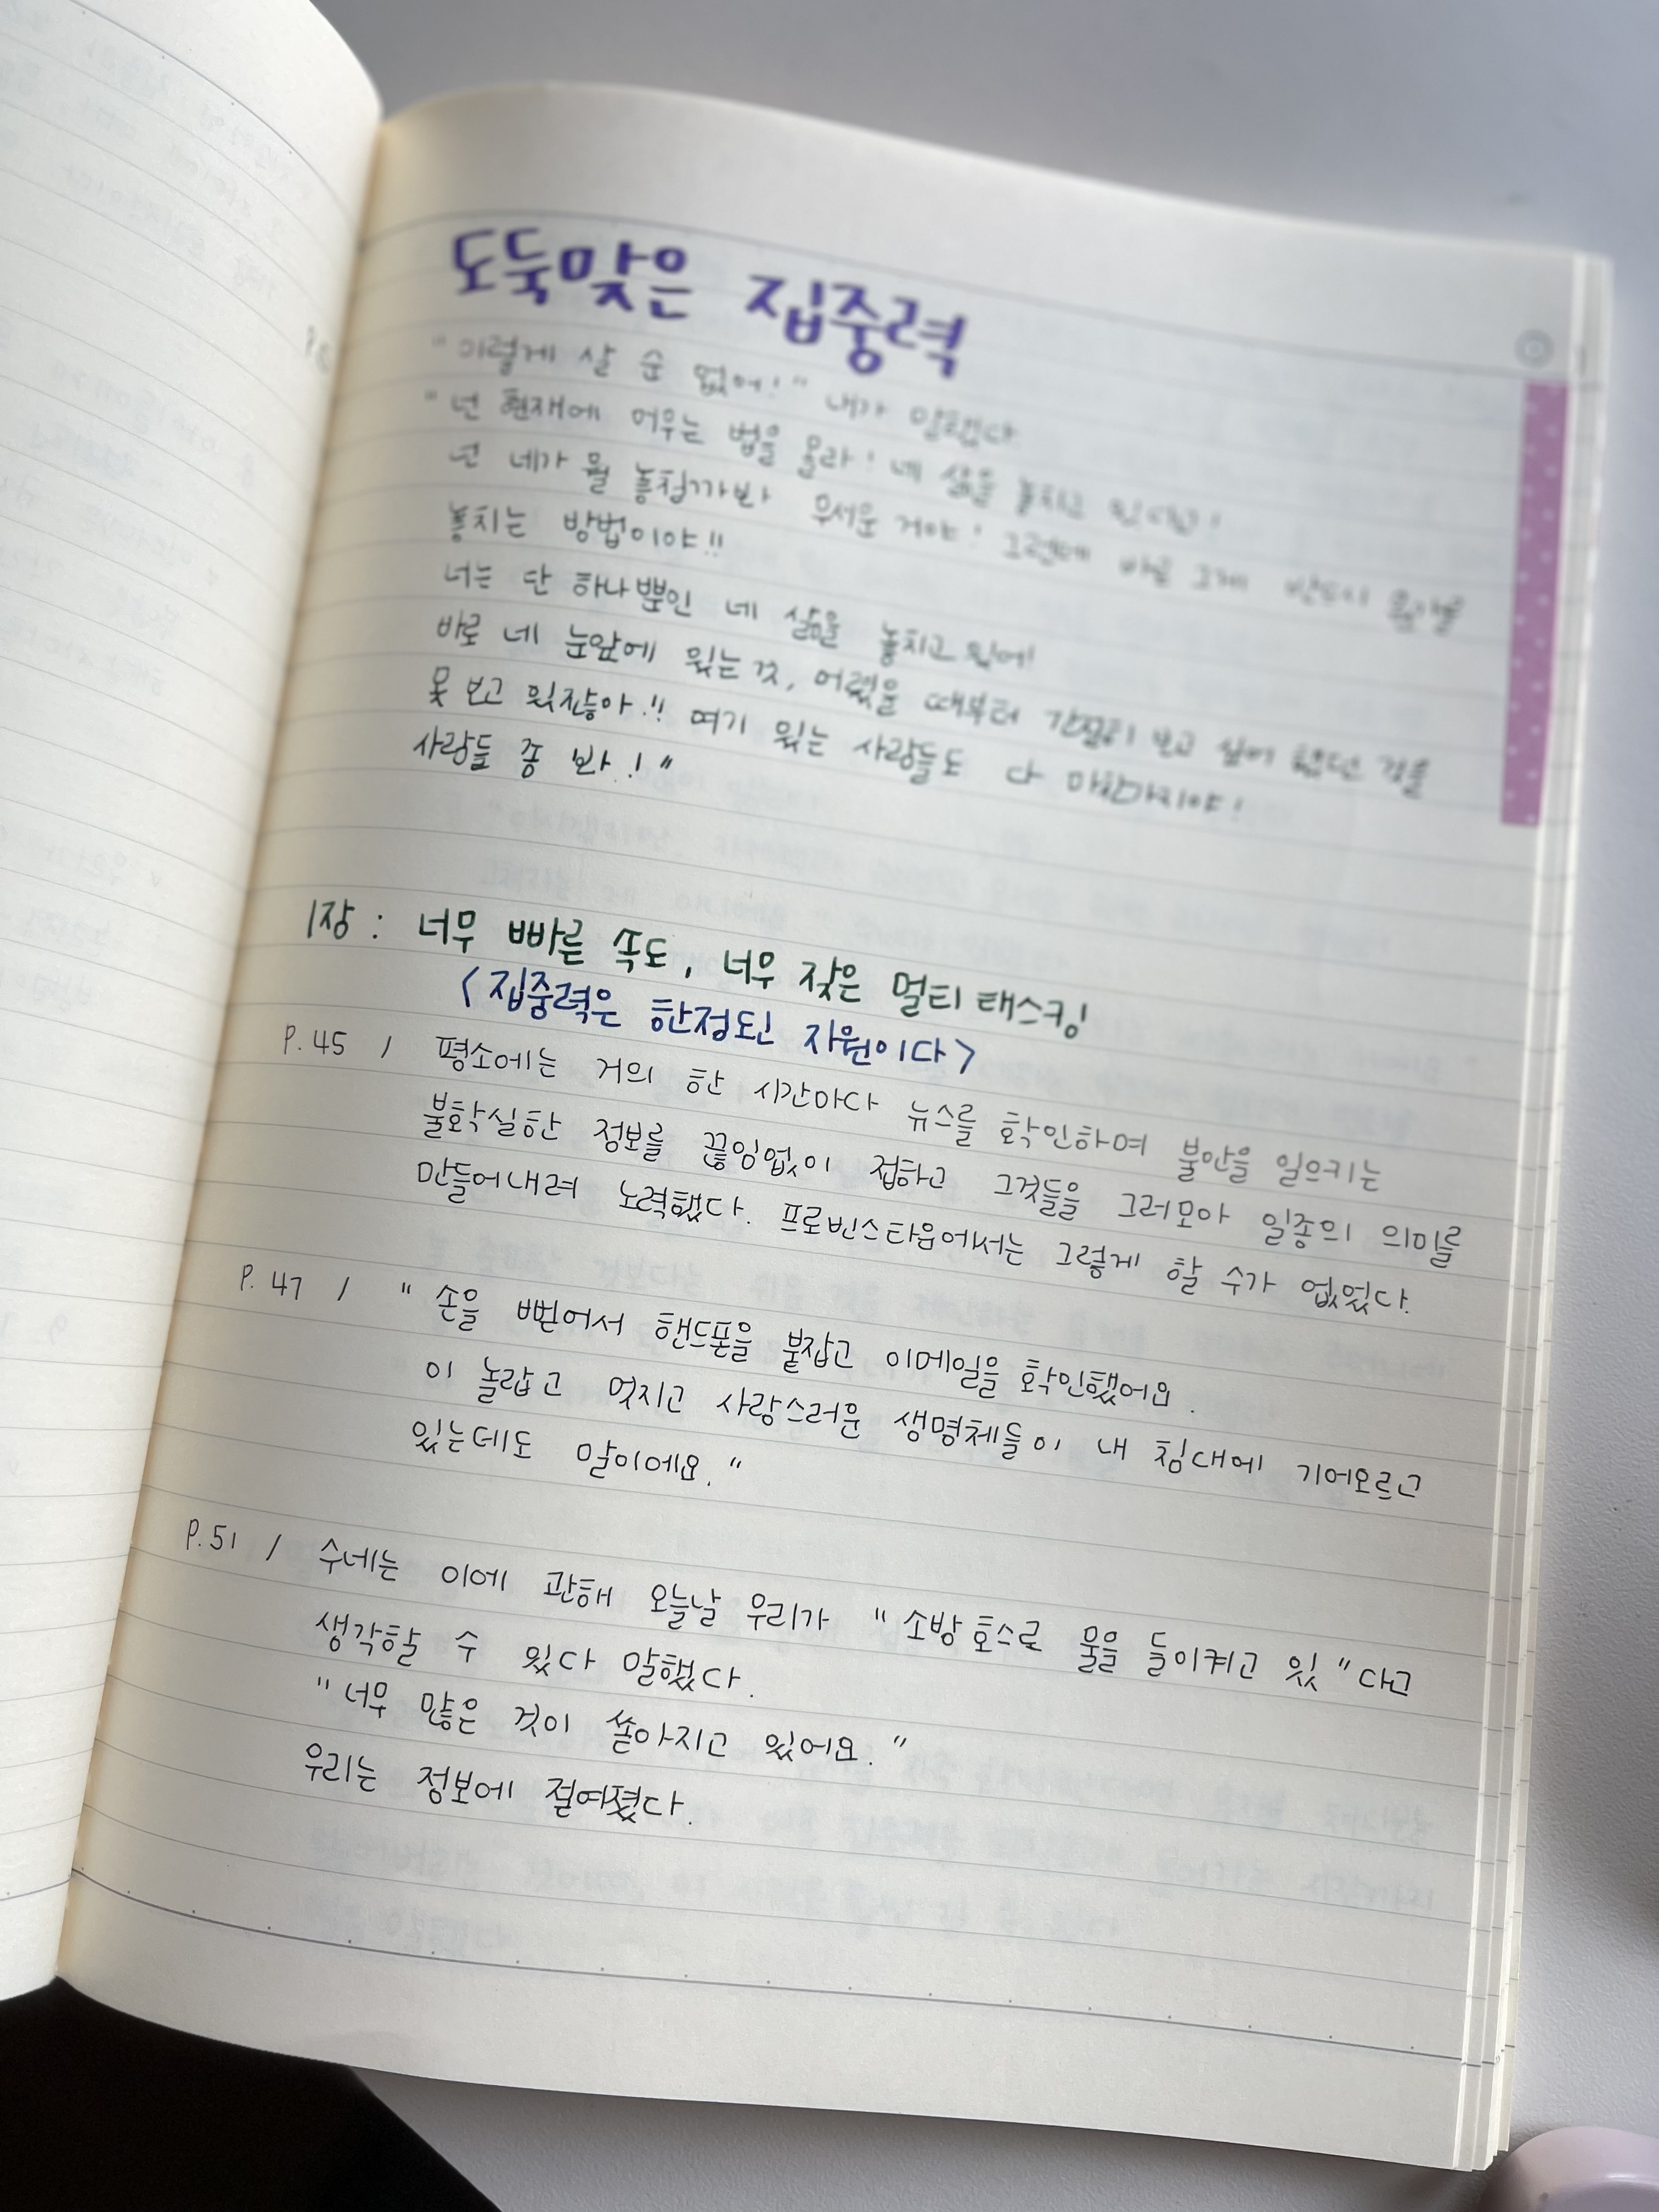 도둑맞은 집중력
"이렇게 살 순 없어!" 내가 말했다
"넌 현재에 머무는 법을 몰라! 네 삶을 놓치고 있다고!
넌 네가 뭘 놓칠까봐 무서운 거야! 그런데 바로 그게 반드시 뭔가를
놓치는 방법이야!!
너는 단 하나뿐인 네 삶을 놓치고 있어!
바로 네 눈앞에 있는 것, 어렸을 때부터 간절히 보고 싶어 했던 것을
못 보고 있잖아!! 여기 있는 사람들도 다 마찬가지야!
사람들 좀 봐!"
1장 : 너무 빠른 속도, 너무 잦은 멀티태스킹
<집중력은 한정된 자원이다>
P.45 / 평소에는 거의 한 시간마다 뉴스를 확인하며 불안을 일으키는
불확실한 정보를 끊임없이 접하고 그것들을 그러모아 일종의 의미를
만들어내려 노력했다. 프로빈스타운에서는 그렇게 할 수가 없었다.
P. 47 / "손을 뻗어서 핸드폰을 붙잡고 이메일을 확인했어요.
이 놀랍고 멋지고 사랑스러운 생명체들이 내 침대에 기어오르고
있는데도 말이에요."
P.51 / 수네는 이에 관해 오늘날 우리가 "소방호스로 물을 들이켜고 있"다고
생각할 수 있다 말했다.
"너무 많은 것이 쏟아지고 있어요."
우리는 정보에 절여졌다.